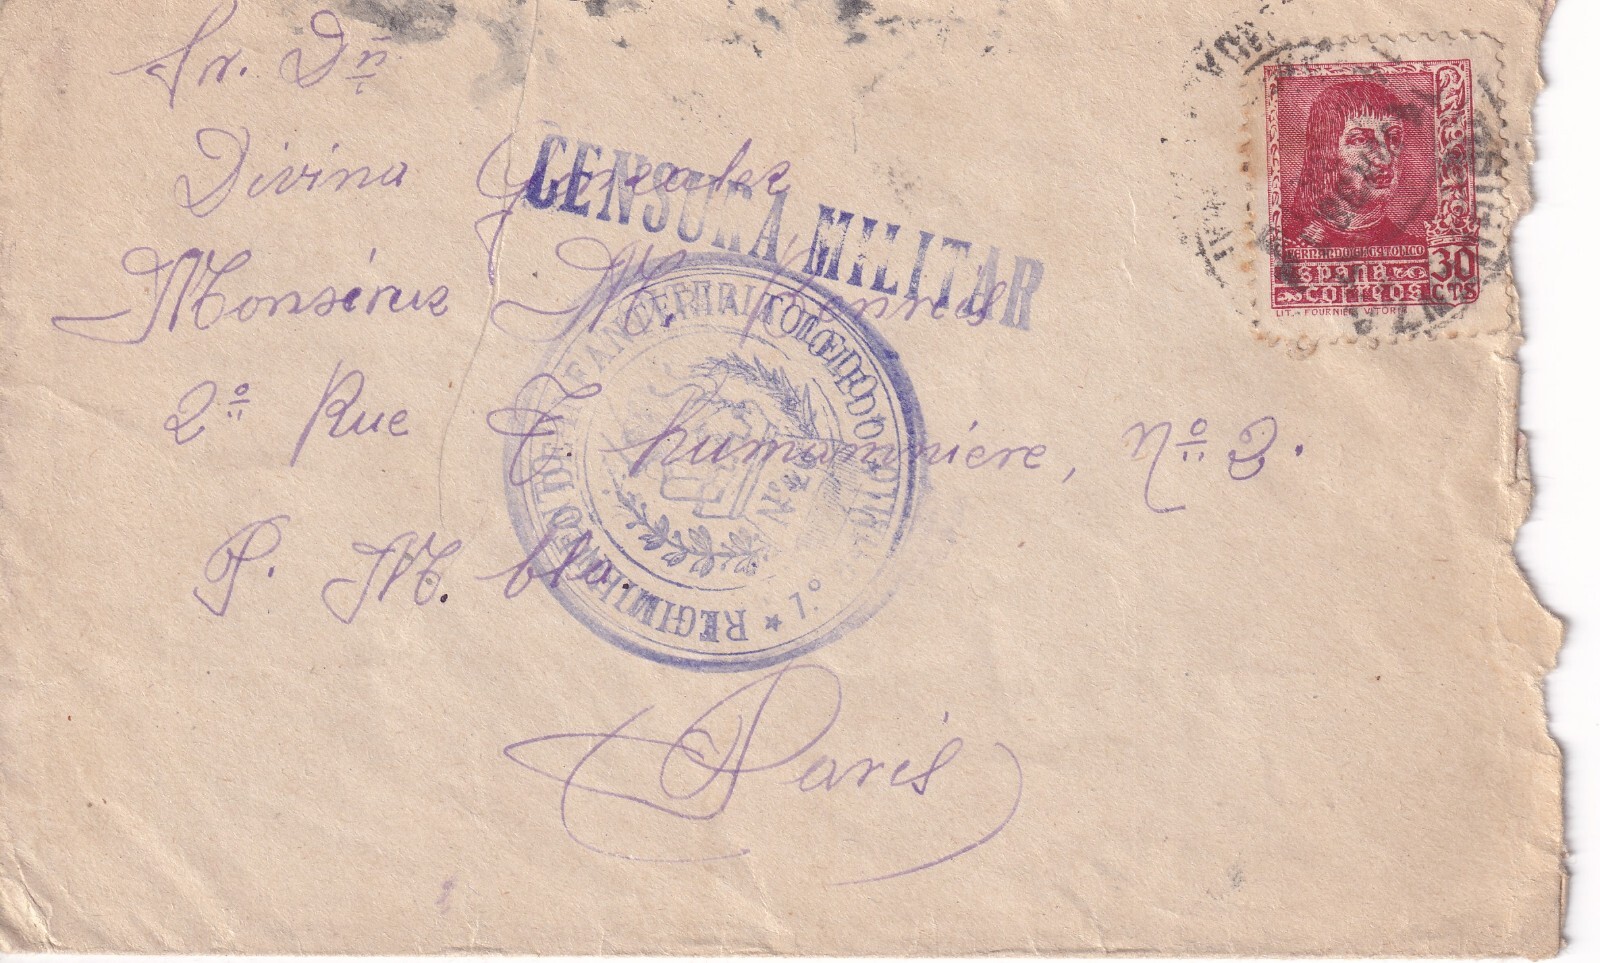 Sr. Dñ
Divina Gonzalez
CENSURA MILITAR
Monsieur M. Henres
2º Rue T. humanniere, Nº 2.
P. M. blo.
Paris
REGIMIENTO DE INFANTERIA TOLEDO
Nº 26
7.º
FERNANDO EL CATOLICO
ESPAÑA
CORREOS
30
CTS
LIT. FOURNIER VITORIA